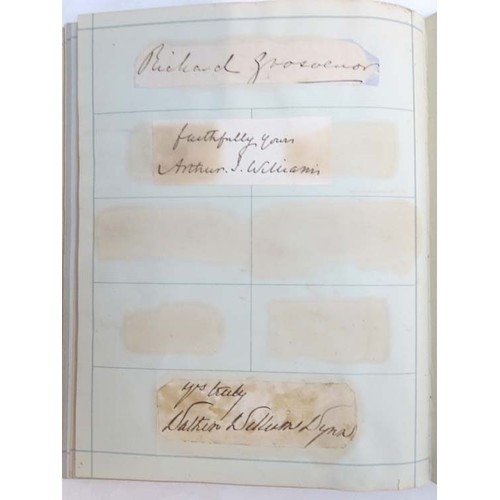 Richard Grosvenor
faithfully yours
Arthur. J. Williams
yrs truly
Watkin Williams Wynn